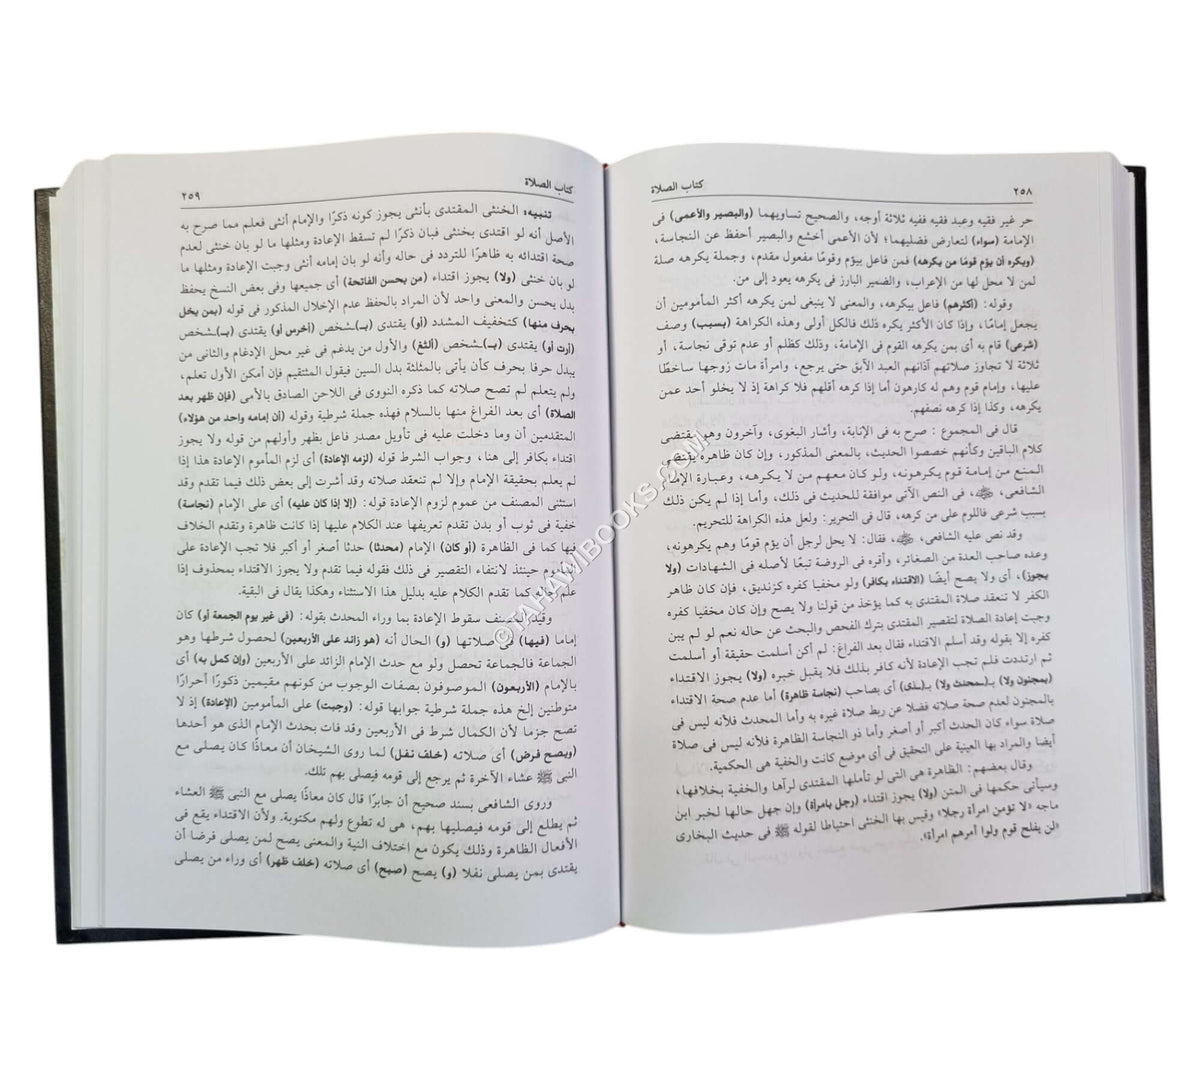 ٢٥٨
كتاب الصلاة
حر غير فقيه وعبد فقيه ففيه ثلاثة أوجه، والصحيح تساويهما (والبصير والأعمى) فى
الإمامة (سواء) لتعارض فضليهما؛ لأن الأعمى أخشع والبصير أحفظ عن النجاسة،
(ويكره أن يؤم قومًا من يكرهه) فمن فاعل بيؤم وقومًا مفعول مقدم، وجملة يكرهه صلة
لمن لا محل لها من الإعراب، والضمير البارز في يكرهه يعود إلى من.
وقوله: (أكثرهم) فاعل بيكرهه، والمعنى لا ينبغى لمن يكرهه أكثر المأمومين أن
يجعل إمامًا، وإذا كان الأكثر يكره ذلك فالكل أولى وهذه الكراهة (بسبب) وصف
(شرعى) قام به أى بمن يكرهه القوم فى الإمامة، وذلك كظلم أو عدم توقى نجاسة، أو
ثلاثة لا تجاوز صلاتهم آذانهم العبد الآبق حتى يرجع، وامرأة مات زوجها ساخطًا
عليها، وإمام قوم وهم له كارهون أما إذا كرهه أقلهم فلا كراهة إذ لا يخلو أحد عمن
يكرهه، وكذا إذا كرهه نصفهم.
قال فى المجموع : صرح به فى الإبانة، وأشار البغوى، وآخرون وهو مقتضى
كلام الباقين وكأنهم خصصوا الحديث، بالمعنى المذكور، وإن كان ظاهره يقتضى
المنع من إمامة قوم يكرهونه، ولو كان معهم من لا يكرهه، وعبارة الإمام
الشافعى، ﵁، فى النص الآتى موافقة للحديث فى ذلك، وأما إذا لم يكن ذلك
بسبب شرعى فاللوم على من كرهه، قال فى التحرير: ولعل هذه الكراهة للتحريم.
وقد نص عليه الشافعى، ﵁، فقال: لا يحل لرجل أن يؤم قومًا وهم يكرهونه،
وعده صاحب العدة من الصغائر، وأقره فى الروضة تبعًا لأصله فى الشهادات (ولا
يجوز)، أى ولا يصح أيضًا (الاقتداء بكافر) ولو مخفيا كفره كزنديق، فإن كان ظاهر
الكفر لا تنعقد صلاة المقتدى به كما يؤخذ من قولنا ولا يصح وإن كان مخفيا كفره
وجبت إعادة الصلاة لتقصير المقتدى بترك الفحص والبحث عن حاله نعم لو لم يبن
كفره إلا بقوله وقد أسلم الاقتداء فقال بعد الفراغ: لم أكن أسلمت حقيقة أو أسلمت
ثم ارتددت فلم تجب الإعادة لأنه كافر بذلك فلا يقبل خبره (ولا) يجوز الاقتداء
(بمجنون ولا) بـ(محدث ولا) بـ(ـذى) أى بصاحب (نجاسة ظاهرة) أما عدم صحة الاقتداء
بالمجنون لعدم صحة صلاته فضلا عن ربط صلاة غيره به وأما المحدث فلأنه ليس فى
صلاة سواء كان الحدث أكبر أو أصغر وأما ذو النجاسة الظاهرة فلأنه ليس فى صلاة
أيضا والمراد بها العينية على التحقيق فى أى موضع كانت والخفية هى الحكمية.
وقال بعضهم: الظاهرة هى التى لو تأملها المقتدى لرآها والخفية بخلافها،
وسيأتى حكمها فى المتن (ولا) يجوز اقتداء (رجل بامرأة) وإن جهل حالها لخبر ابن
ماجه «لا تؤمن امرأة رجلا» وقيس بها الخنثى احتياطا لقوله ﷺ فى حديث البخارى
«لن يفلح قوم ولوا أمرهم امرأة».
كتاب الصلاة
٢٥٩
تنبيه: الخنثى المقتدى بأنثى يجوز كونه ذكرًا والإمام أنثى فعلم مما صرح به
الأصل أنه لو اقتدى بخنثى فبان ذكرًا لم تسقط الإعادة ومثلها ما لو بان خنثى لعدم
صحة اقتدائه به ظاهرًا للتردد فى حاله وأنه لو بان إمامه أنثى وجبت الإعادة ومثلها ما
لو بان خنثى (ولا) يجوز اقتداء (من يحسن الفاتحة) أى جميعها وفى بعض النسخ يحفظ
بدل يحسن والمعنى واحد لأن المراد بالحفظ عدم الإخلال المذكور فى قوله (بمن يخل
بحرف منها) كتخفيف المشدد (أو) يقتدى (بـ)ـشخص (أخرس أو) يقتدى (بـ)ـشخص
(أرت أو) يقتدى (بـ)ـشخص (ألثغ) والأول من يدغم فى غير محل الإدغام والثانى من
يبدل حرفا بحرف كأن يأتى بالمثلثة بدل السين فيقول المثتقيم فإن أمكن الأول تعلم،
ولم يتعلم لم تصح صلاته كما ذكره النووى فى اللاحن الصادق بالأمى (فإن ظهر بعد
الصلاة) أى بعد الفراغ منها بالسلام فهذه جملة شرطية وقوله (أن إمامه واحد من هؤلاء)
المتقدمين أن وما دخلت عليه فى تأويل مصدر فاعل بظهر وأولهم من قوله ولا يجوز
اقتداء بكافر إلى هنا، وجواب الشرط قوله (لزمه الإعادة) أى لزم المأموم الإعادة هذا إذا
لم يعلم بحقيقة الإمام وإلا لم تنعقد صلاته وقد أشرت إلى بعض ذلك فيما تقدم وقد
استثنى المصنف من عموم لزوم الإعادة قوله: (إلا إذا كان عليه) أى على الإمام (نجاسة)
خفية فى ثوب أو بدن تقدم تعريفها عند الكلام عليها إذا كانت ظاهرة وتقدم الخلاف
فيها كما فى الظاهرة (أو كان) الإمام (محدثا) حدثا أصغر أو أكبر فلا تجب الإعادة على
المأموم حينئذ لانتفاء التقصير فى ذلك فقوله فيما تقدم ولا يجوز الاقتداء بمحذوف إذا
علم حاله كما تقدم الكلام عليه بدليل هذا الاستثناء وهكذا يقال فى البقية.
وقيد المصنف سقوط الإعادة بما وراء المحدث بقوله: (فى غير يوم الجمعة أو) كان
إماما (فيها) فى صلاتها (و) الحال أنه (هو زائد على الأربعين) لحصول شرطها وهو
الجماعة فالجماعة تحصل ولو مع حدث الإمام الزائد على الأربعين (وإن كمل به) أى
بالإمام (الأربعون) الموصوفون بصفات الوجوب من كونهم مقيمين ذكورًا أحرارًا
متوطنين إلخ هذه جملة شرطية جوابها قوله: (وجبت) على المأمومين (الإعادة) إذ لا
تصح جزمًا لأن الكمال شرط فى الأربعين وقد فات بحدث الإمام الذى هو أحدها
(ويصح فرض) أى صلاته (خلف نفل) لما روى الشيخان أن معاذًا كان يصلى مع
النبى ﷺ عشاء الآخرة ثم يرجع إلى قومه فيصلى بهم تلك.
وروى الشافعى بسند صحيح أن جابرًا قال كان معاذًا يصلى مع النبى ﷺ العشاء
ثم يطلع إلى قومه فيصليها بهم، هى له تطوع ولهم مكتوبة. ولأن الاقتداء يقع فى
الأفعال الظاهرة وذلك يكون مع اختلاف النية والمعنى يصح لمن يصلى فرضا أن
يقتدى بمن يصلى نفلا (و) يصح (صبح) أى صلاته (خلف ظهر) أى وراء من يصلى
©TAHAWIBOOKS.COM